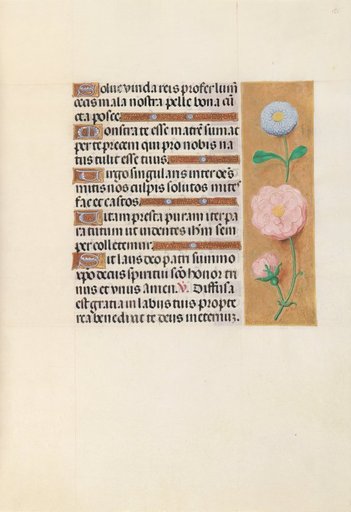 Solve vincla reis profer lum
cecis mala nostra pelle bona cū
cta posce
Monstra te esse matrē sumat
per te precem qui pro nobis na
tus tulit esse tuus
Virgo singularis inter oēs
mitis nos culpis solutos mites
fac et castos
Vitam presta puram iter pa
ra tutum ut videntes ihm sem
per colletemur
Sit laus deo patri summo
xpo decus spiritui scō honor tri
nus et vnus amen. V. Diffusa
est gratia in labiis tuis propte
rea benedixit te deus in eternū.